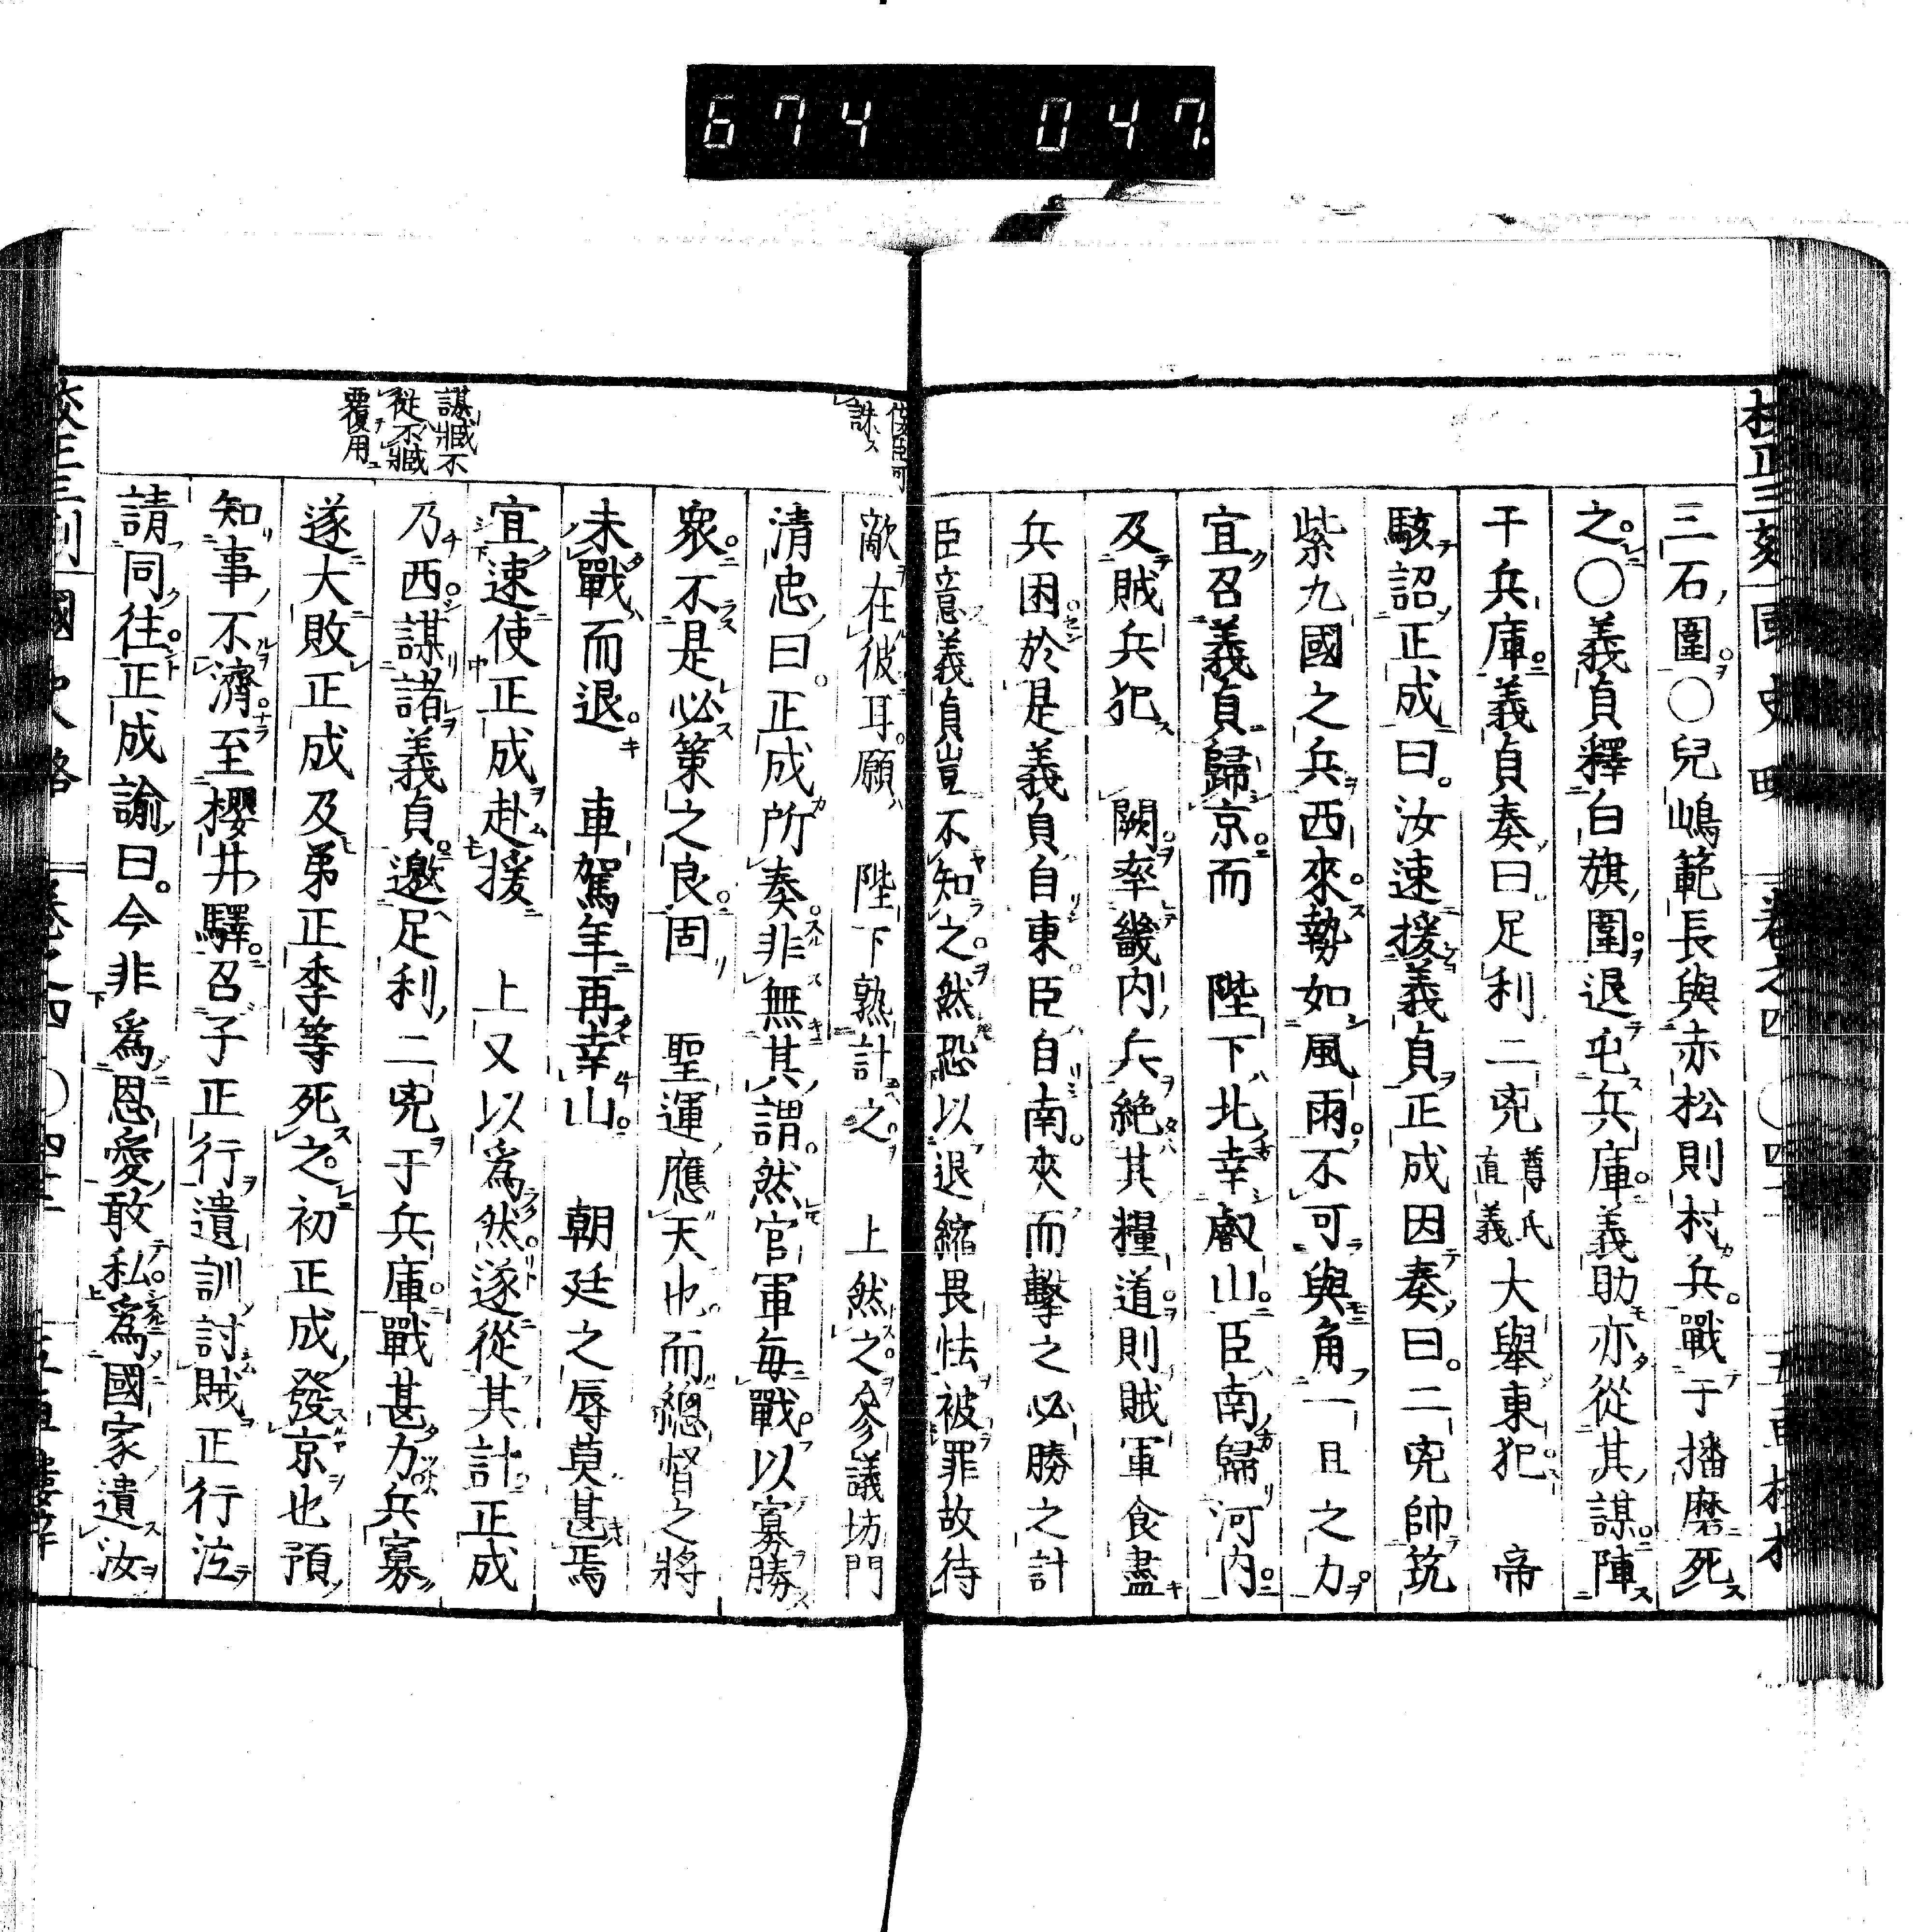 674 047
校正三刻國史略
三石圍○兒嶋範長與赤松則村兵戰于播磨死
之○義貞釋白旗圍退屯兵庫義助亦從其謀陣
于兵庫義貞奏曰足利二兇尊氏直義大舉東犯 帝
駭詔正成曰汝速援義貞正成因奏曰二兇帥筑
紫九國之兵西來勢如風雨不可與角一旦之力
宜召義貞歸京而 陛下北幸叡山臣南歸河内
及賊兵犯 闕率畿内兵絶其糧道則賊軍食盡
兵困於是義貞自東臣自南夾而擊之必勝之計
臣意義貞豈不知之然恐以退縮畏怯被罪故待
敵在彼耳願 陛下熟計之 上然之參議坊門
清忠曰正成所奏非無其謂然官軍毎戰以寡勝
衆不是必策之良固 聖運應天也而總督之將
未戰而退 車駕年再幸山 朝廷之辱莫甚焉
宜速使正成赴援 上又以爲然遂從其計正成
乃西謀諸義貞邀足利二兇于兵庫戰甚力兵寡
遂大敗正成及弟正季等死之初正成發京也預
知事不濟至櫻井驛召子正行遺訓討賊正行泣
請同往正成諭曰今非爲恩愛敢私爲國家遺汝
誅
謀臧不
從不臧
覆用